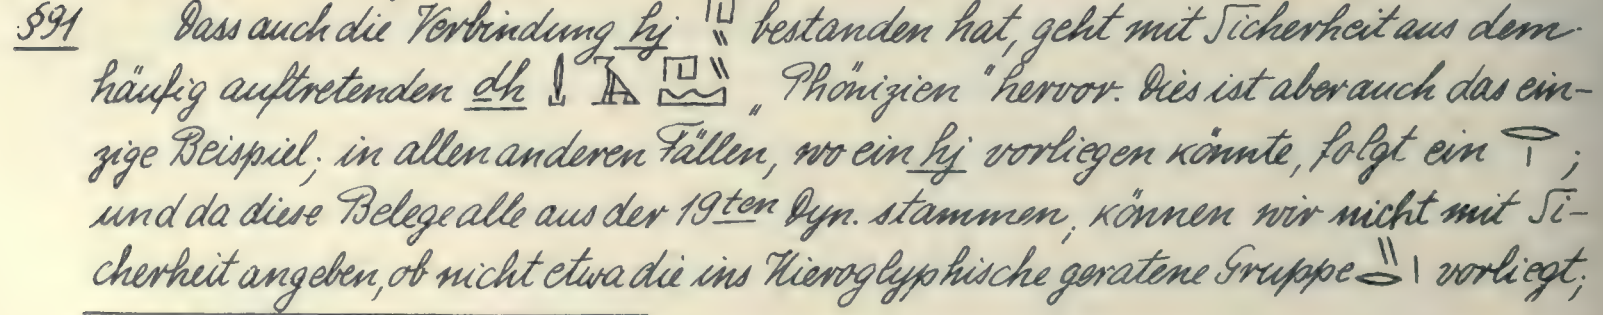 §91 Dass auch die Verbindung hj 𓉔𓏭 bestanden hat, geht mit Sicherheit aus dem
häufig auftretenden dh „Phönizien" hervor. Dies ist aber auch das ein-
zige Beispiel; in allen anderen Fällen, wo ein hj vorliegen könnte, folgt ein 𓂋𓏤;
und da diese Belege alle aus der 19ten Dyn. stammen, können wir nicht mit Si-
cherheit angeben, ob nicht etwa die ins Hieroglyphische geratene Gruppe 𓏭𓂋𓏤 vorliegt;